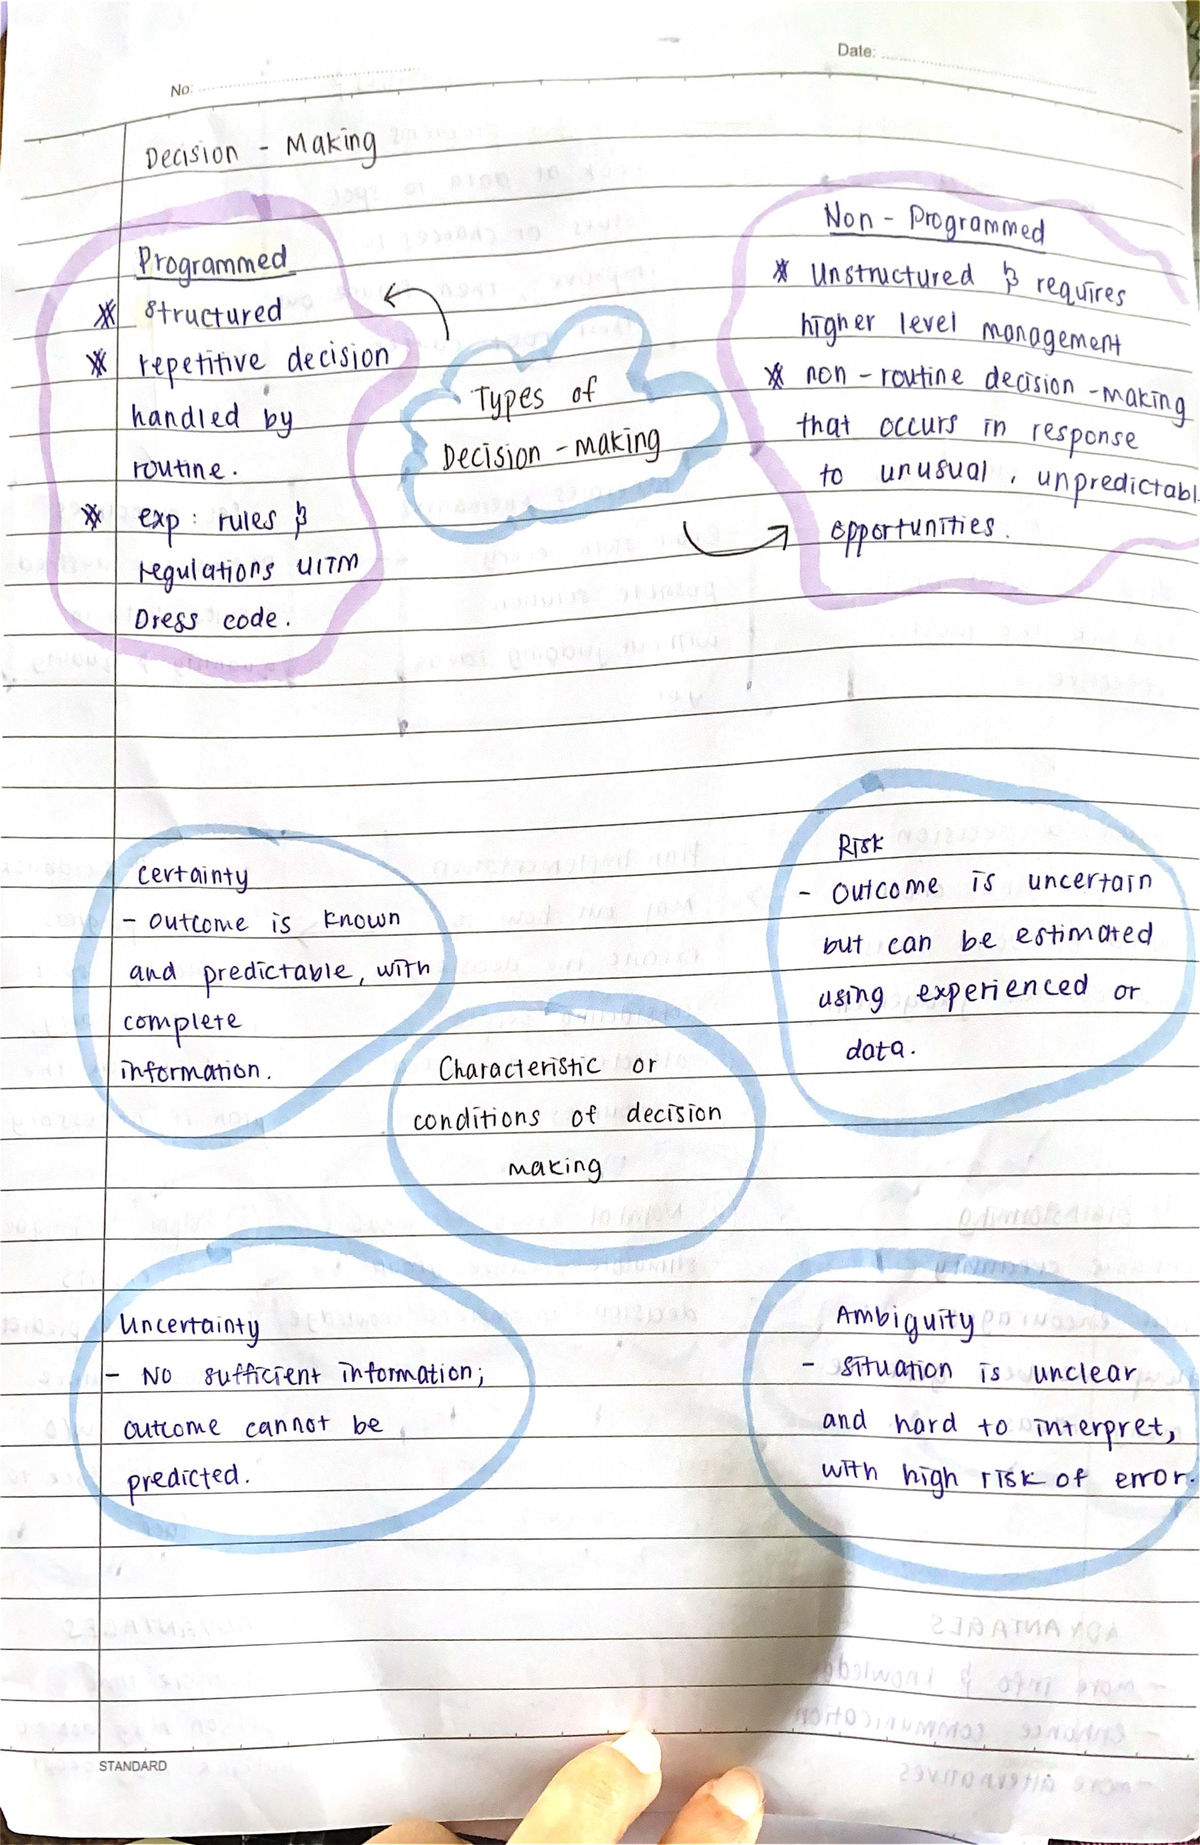 No:
Date:
Decision - Making
Programmed
* structured
* repetitive decision
handled by
routine.
* exp : rules &
regulations UITM
Dress code.
Types of
Decision - making
Non - Programmed
* Unstructured & requires
higher level management
* non - routine decision - making
that occurs in response
to unusual , unpredictabl
opportunities.
Certainty
- outcome is known
and predictable, with
complete
information.
Risk
- outcome is uncertain
but can be estimated
using experienced or
data.
Characteristic or
conditions of decision
making
Uncertainty
- No sufficient information;
outcome cannot be
predicted.
Ambiguity
- situation is unclear
and hard to interpret,
with high risk of error.
STANDARD